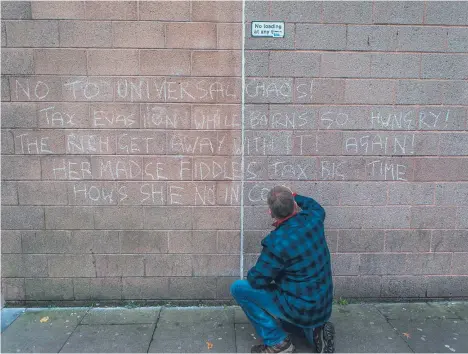 No loading
at any time
NO TO UNIVERSAL CHAOS!
TAX EVASION WHILE BAIRNS GO HUNGRY!
THE RICH GET AWAY WITH IT! AGAIN!
HER MADGE FIDDLES TAX BIG TIME
HOW'S SHE NO IN CO